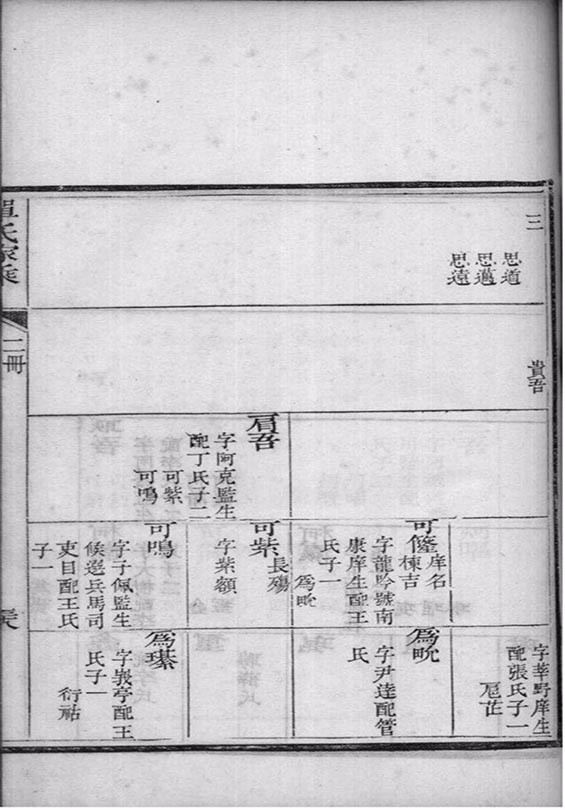 三
思道
思邁
思遠
貴吾
肩吾
字阿克監生
配丁氏子二
可紫
可鳴
庠名
棟吉
字龍吟號南
康庠生配王
氏子一
為晥
可紫
長殤
字紫額
可鳴
字子佩監生
候選兵馬司
吏目配王氏
子一
字莘野庠生
配張氏子一
為晥
字尹達配管
氏
為璂
字峩亭配王
氏子一
衍祜
單氏家乘
二冊